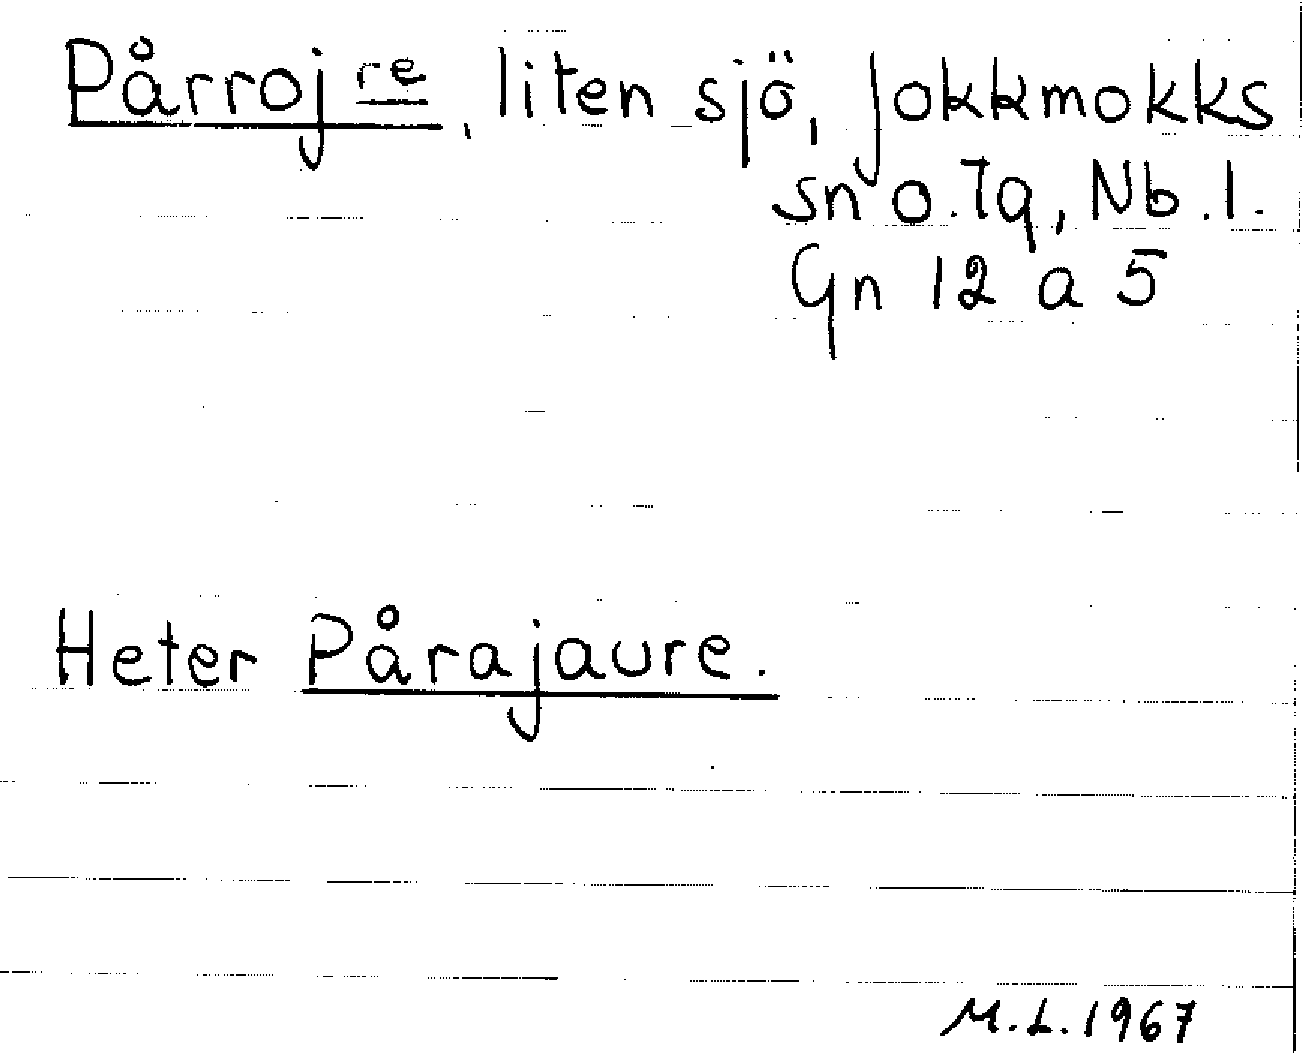 Pårrojre, liten sjö, Jokkmokks
sn o. Tg, Nb. l.
Gn 12 a 5
Heter Pårajaure.
M.L. 1967